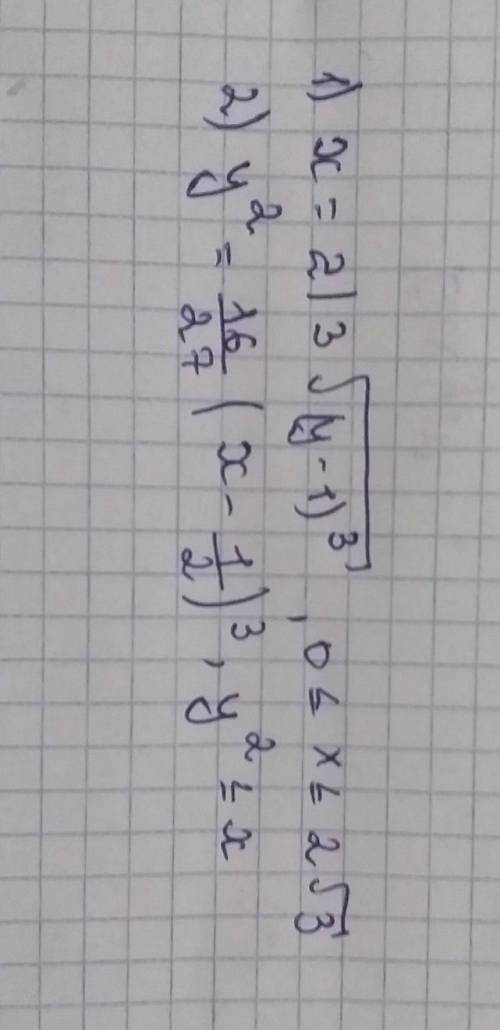 1) x = 2/3 √(y-1)³, 0 ≤ x ≤ 2√3
2) y² = 16/27 (x - 1/2)³, y² ≤ x